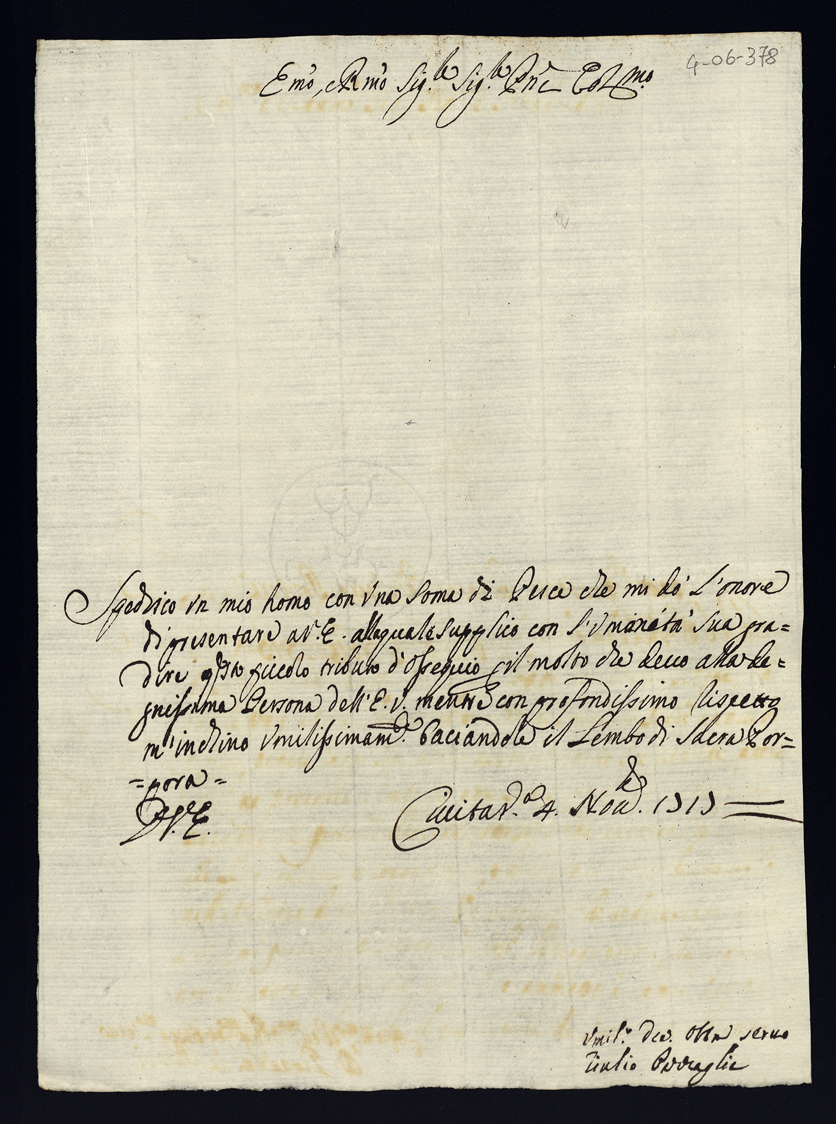 4-06-378
Emo, e Rmo Sig.re Sig.re Pne Col.mo
Spedisco un mio homo con una soma di Pesce che mi dò L'onore
di presentare a V.E. alla quale supplico con l'umanità sua gra=
dire qsto piccolo tributo d'ossequio, il molto che devo alla de=
gnissima Persona dell'E.V. mentre con profondissimo Rispetto
m'inchino umilissimam.te baciandole il Lembo di Sacra Por=
=pora=
D.V.E.
Civitav.a 4. Nov.re 1715
Umil.o dev. obb.mo servo
Giulio